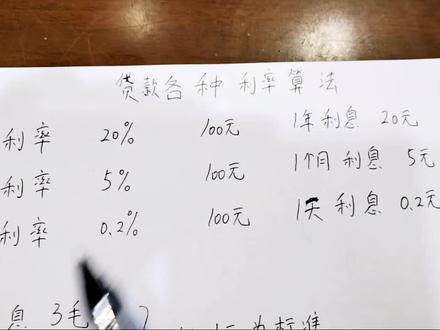 贷款各种利率算法
利率 20% 100元 1年利息 20元
利率 5% 100元 1个月利息 5元
利率 0.2% 100元 1天利息 0.2元
息 3毛
为标准